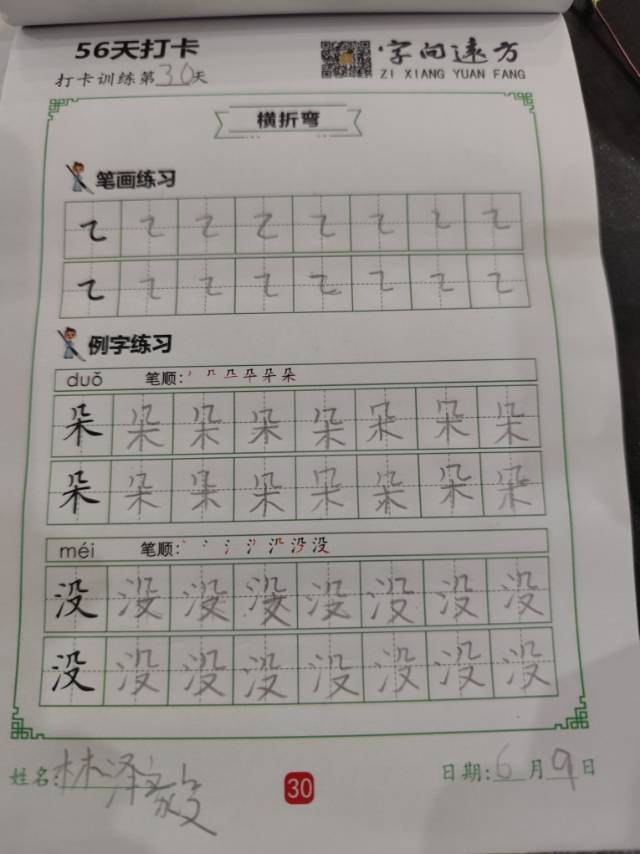 56天打卡
字向远方
打卡训练第30天
ZI XIANG YUAN FANG
横折弯
笔画练习
㇍ ㇍ ㇍ ㇍ ㇍ ㇍ ㇍ ㇍
㇍ ㇍ ㇍ ㇍ ㇍ ㇍ ㇍ ㇍
例字练习
duǒ 笔顺:
朵 朵 朵 朵 朵 朵 朵 朵
朵 朵 朵 朵 朵 朵 朵 朵
méi 笔顺:
没 没 没 没 没 没 没 没
没 没 没 没 没 没 没 没
姓名:林泽
30
日期:6月9日